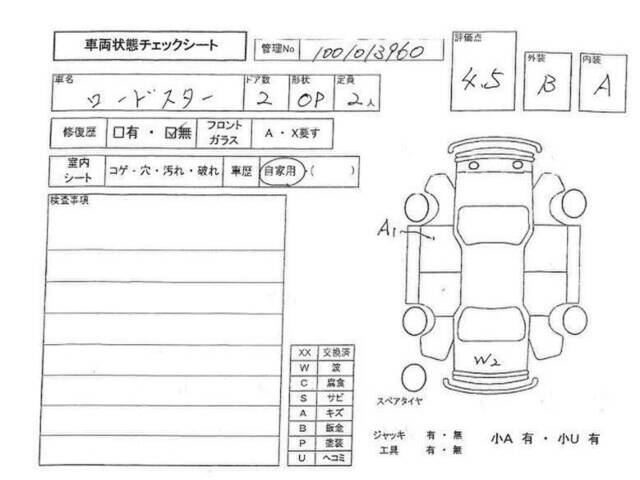 車両状態チェックシート
管理No 1001013960
評価点 4.5
外装 B
内装 A
車名 ロードスター
ドア数 2
形状 OP
定員 2人
修復歴 □有・☑無
フロントガラス A・X要す
室内シート コゲ・穴・汚れ・破れ
車歴 自家用・( )
検査事項
A1
W2
XX 交換済
W 波
C 腐食
S サビ
A キズ
B 鈑金
P 塗装
U ヘコミ
スペアタイヤ
ジャッキ 有・無
工具 有・無
小A 有・小U 有